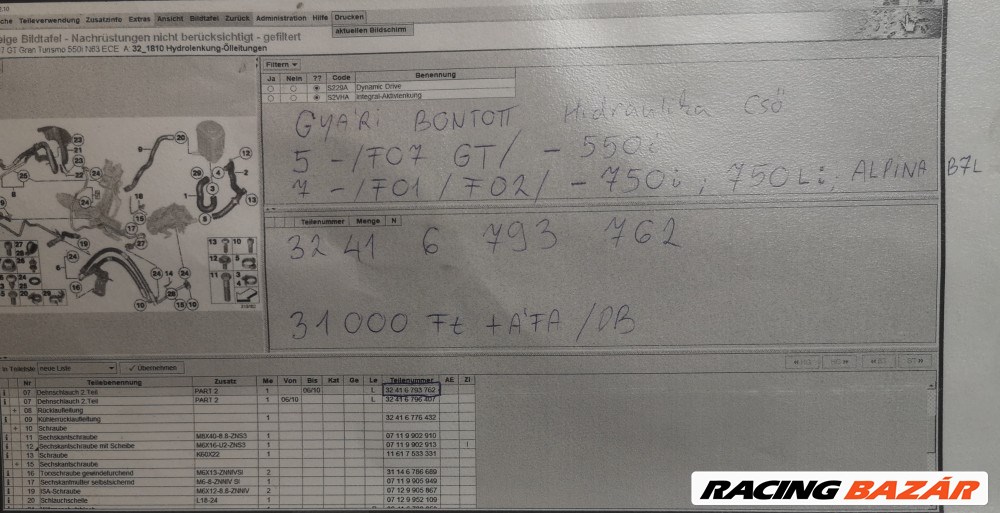 Teileverwendung Zusatzinfo Extras Ansicht Bildtafel Zurück Administration Hilfe Drucken
aktuellen Bildschirm
eige Bildtafel - Nachrüstungen nicht berücksichtigt - gefiltert
7 GT Gran Turismo 550i N63 ECE A: 32_1810 Hydrolenkung-Ölleitungen
Filtern
Ja Nein ?? Code Benennung
S229A Dynamic Drive
S2VHA Integral-Aktivlenkung
GYÁRI BONTOTT Hidraulika Cső
5 -/F07 GT/ - 550i
7 -/F01/F02/ - 750i, 750Li, ALPINA B7L
Teilenummer Menge N
32 41 6 793 762
31 000 Ft + ÁFA /DB
in Teileliste neue Liste Übernehmen
Nr Teilebenennung Zusatz Me Von Bis Kat Ge Le Teilenummer AE ZI
07 Dehnschlauch 2.Teil PART 2 1 06/10 L 32 41 6 793 762
07 Dehnschlauch 2.Teil PART 2 1 06/10 L 32 41 6 796 407
+ 08 Rücklaufleitung
09 Kühlerrücklaufleitung 1 32 41 6 776 432
+ 10 Schraube
11 Sechskantschraube M8X40-8.8-ZNS3 1 07 11 9 902 910
12 Sechskantschraube mit Scheibe M6X16-U2-ZNS3 1 07 11 9 902 913
13 Schraube K60X22 1 11 61 7 533 331
+ 15 Sechskantschraube
16 Torxschraube gewindefurchend M6X13-ZNNIVSI 2 31 14 6 786 689
17 Sechskantmutter selbstsichernd M6-8-ZNNIV SI 1 07 11 9 905 949
19 ISA-Schraube M6X12-8.8-ZNNIV 2 07 12 9 905 867
20 Schlauchschelle L18-24 1 07 12 9 952 109
RACING BAZÁR